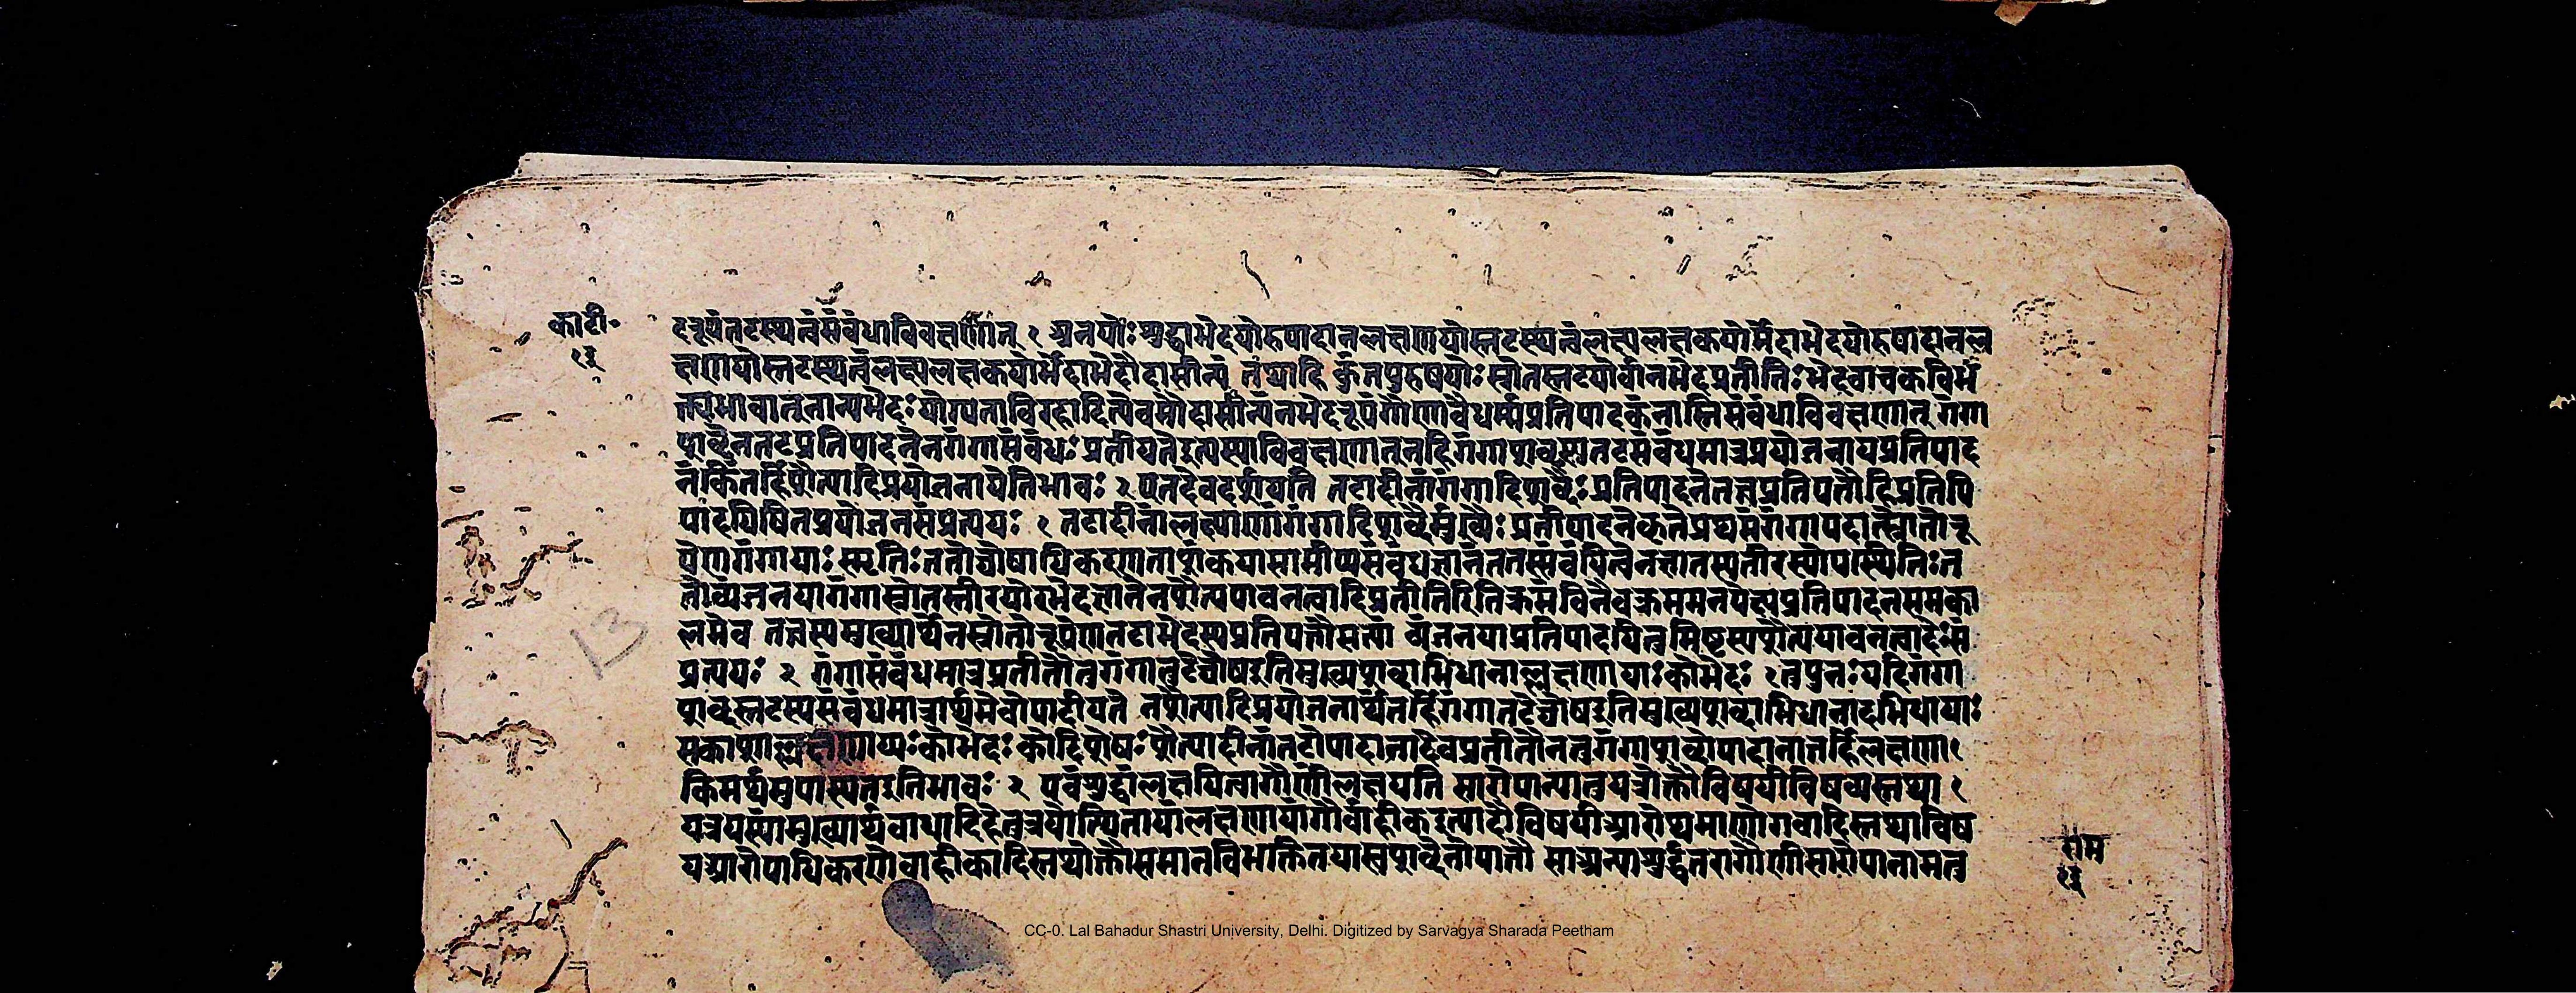 का॰टी॰
१३
दरूपंतटस्थत्वंसंबंधाविवक्षणात् १ अनयोः शुद्धाभेदयोरुपादानलक्षणयोस्तटस्थत्वंलक्ष्यलक्षकयोर्भेदाभेदयोरुपादानल
क्षणयोस्तटस्थत्वंलक्ष्यलक्षकयोर्भेदाभेदौदासीन्यं तंथाहि कुंतपुरुषयोः स्रोतस्तटयोर्वानभेदप्रतीतिः भेदवाचकविभ
क्त्यभावात्नाप्यभेदः योग्यताविरहादित्येवमौदासीन्यंनभेदरूपंगौणवैधर्म्यप्रतिपादकंनास्तिसंबंधाविवक्षणात् गंगा
शब्देनतटप्रतिपादनेनगंगासंबंधः प्रतीयतेइत्यस्याविवक्षणात्नहिगंगाशब्दस्तटसंबंधमात्रप्रयोजनायप्रतिपाद
नंकिंतर्हिशैत्यादिप्रयोजनायेतिभावः २ एतदेवदर्शयति तटादीनांगंगादिशब्दैः प्रतिपादनेतत्त्वप्रतिपत्तौहिप्रतिपि
पादयिषितप्रयोजनसंप्रत्ययः १ तटादीनांलक्ष्याणांगंगादिशब्दैर्मुख्यैः प्रतीपादनेकृतेप्रथमंगंगापदात्स्रोतोरू
पेणगंगायाः स्मृतिः ततोघोषाधिकरणताशंकयासामीप्यसंबंधज्ञानंततस्संबंधित्वेनज्ञातस्यतीरस्योपस्थितिः त
तोव्यंजनयागंगास्रोतस्तीरयोरभेदज्ञातेनशैत्यपावनत्वादिप्रतीतिरितिक्रमेविनैवक्रममनपेक्ष्यप्रतिपादनसमका
लमेव तत्त्वस्यमुख्यार्थेनस्रोतोरूपेणतटाभेदस्यप्रतिपत्तौसत्यां व्यंजनयाप्रतिपादयितुमिष्टस्यशैत्यपावनत्वादेः सं
प्रत्ययः २ गंगासंबंधमात्रप्रतीतौतुगंगातटेघोषइतिमुख्यशब्दाभिधानाल्लक्षणायाः कोभेदः १ तुपुनः यदिगंगा
शब्दस्तटस्यसंबंधमात्रार्थमेवोपादीयते नशैत्यादिप्रयोजनार्थंतर्हिगंगातटेघोषइतिमुख्यशब्दाभिधानादभिधायाः
सकाशाल्लक्षणायाः कोभेदः कोविशेषः शैत्यादीनांतटोपादानादेवप्रतीतौनतुगंगाशब्दोपादानात्तर्हिलक्षणा १
किमर्थमुपास्यतइतिभावः २ एवंशुद्धांलक्षयित्वागौणींलक्षयति सारोपान्यातुयत्रोक्तौविषयीविषयस्तथा १
यत्रयस्यांमुख्यार्थबाधादिहेतुत्रयोत्थितायांलक्षणायांगौर्वाहीकइत्यादौविषयीआरोप्यमाणोगवादिस्तथाविष
यआरोपाधिकरणोवाहीकादिस्तथोक्तौसमानविभक्तितयास्वशब्देनोपात्तौ साअन्याशुद्धेतरागौणीसारोपानामत्व
राम
१३
13
CC-0. Lal Bahadur Shastri University, Delhi. Digitized by Sarvagya Sharada Peetham